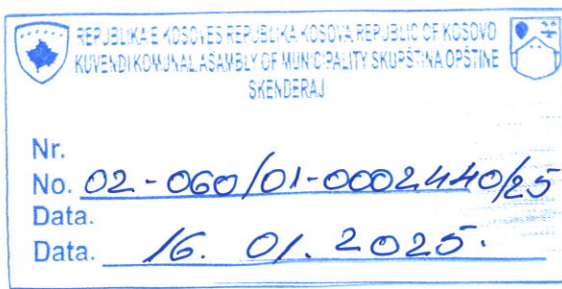 REPUBLIKA E KOSOVES REPUBLIKA KOSOVA REPUBLIC OF KOSOVO
KUVENDI KOMUNAL ASAMBLY OF MUNICIPALITY SKUPŠTINA OPŠTINE
SKENDERAJ
Nr.
No. 02-060/01-0002440/25
Data.
Data. 16. 01. 2025.